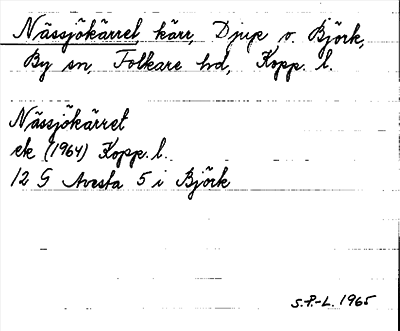 Nässjökärret, kärr, Djup o. Björk,
By sn, Folkare hd, Kopp. l.
Nässjökärret
ek (1964) Kopp. l.
12 G Avesta 5 i Björk
S.P.-L. 1965